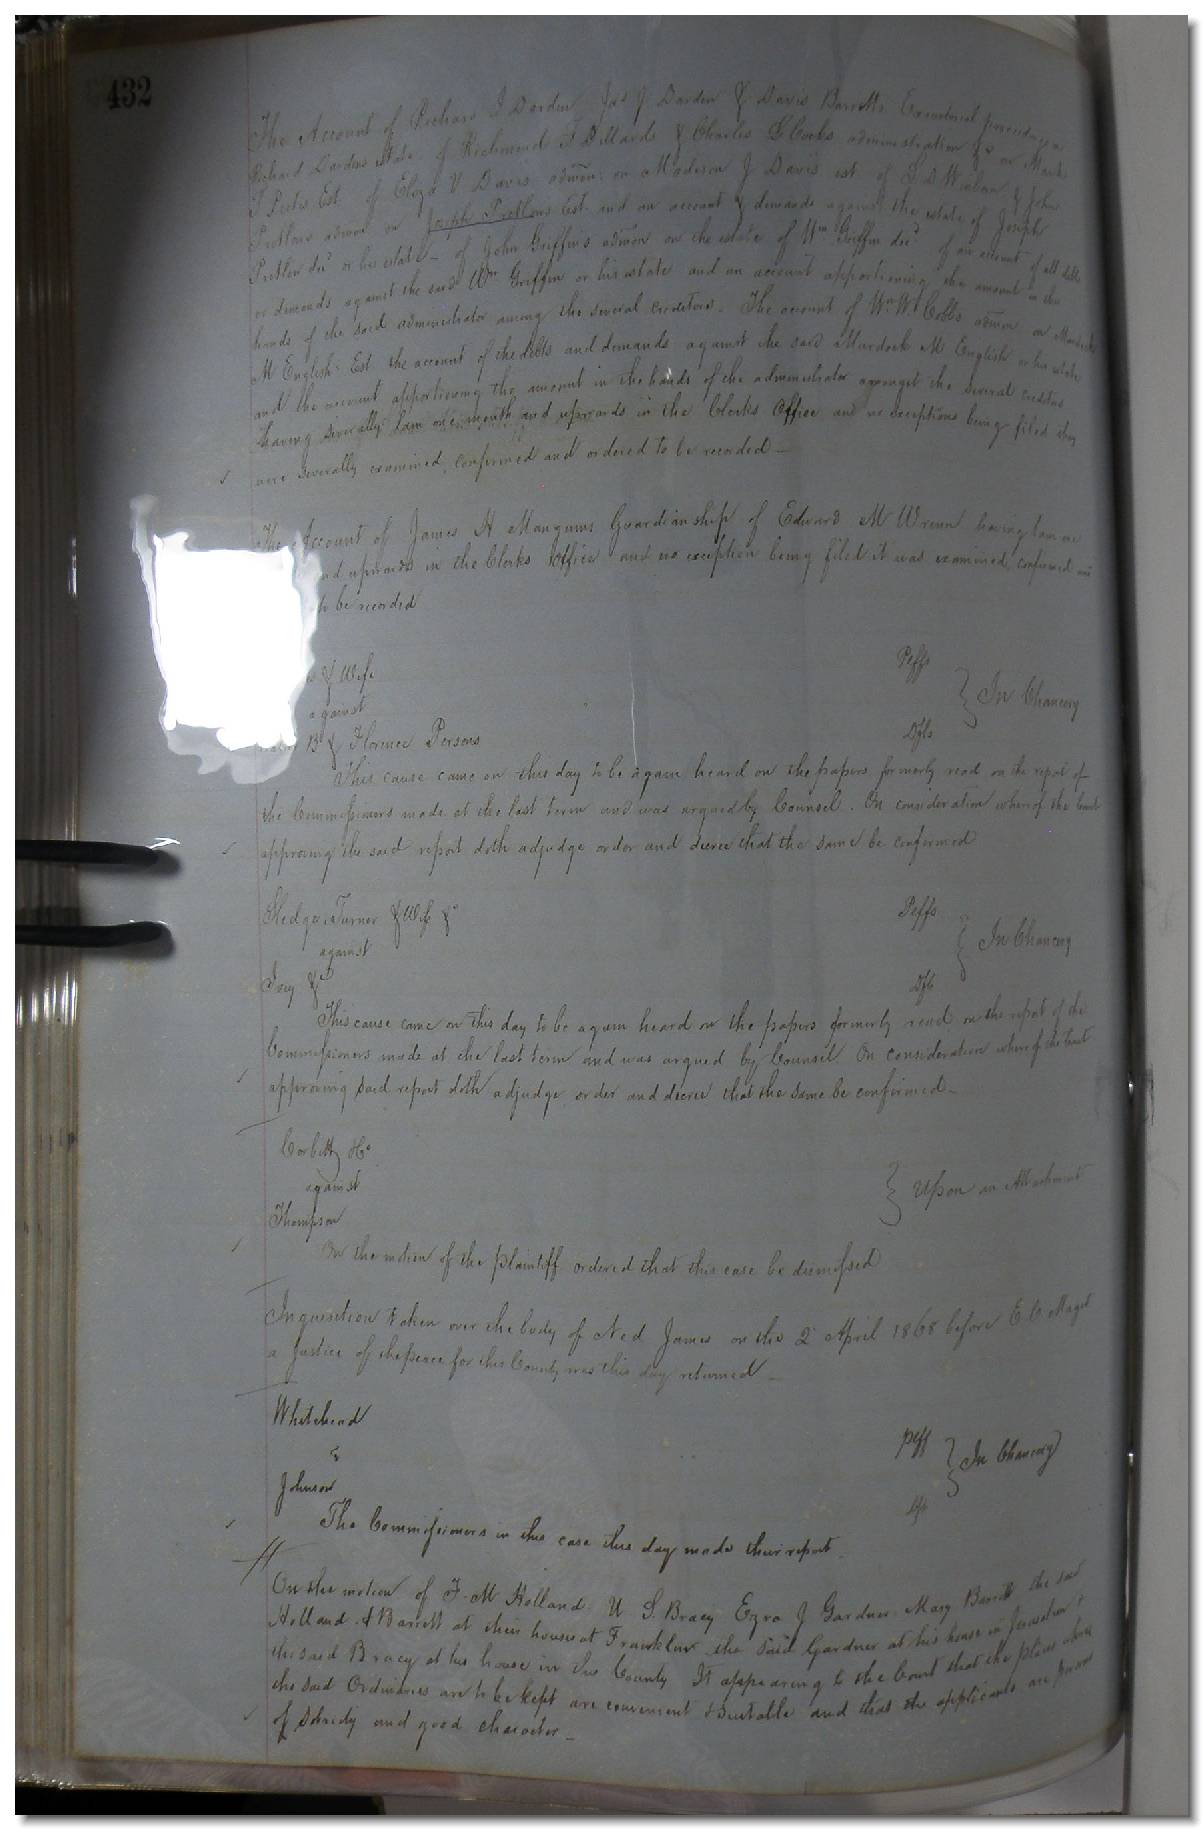 432
The Account of Richard I Darden Jas J Darden & Davis Barretts Executorial proceedings on
Richard Dardens estate of Richmond F Dillards & Charles S Cocks administration &c on Mark
T Peetes Est of Eliza V Davis admon on Madison J Davis est of & John
Pretlow admon on Joseph Pretlows Est and an account of demands against the estate of Joseph
Pretlow decd or his estate of John Griffins admon on the estate of Wm Griffin decd of an account of all debts
or demands against the said Wm Griffin or his estate and an account apportioning the amount in the
hands of the said administrator among the several creditors. The account of Wm W Cobbs admon on Murdock
M English Est the account of the debts and demands against the said Murdock M English or his estate
and the account apportioning the amount in the hands of the administrator amongst the several creditors
having severally lain one month and upwards in the Clerks Office and no exceptions being filed they
were severally examined, confirmed and ordered to be recorded
The Account of James H Mangums Guardianship of Edward M Wrenn having lain one
and upwards in the Clerks Office and no exception being filed it was examined, confirmed and
to be recorded
& Wife Peffs
against } In Chancery
B & Florence Persons Dfts
This cause came on this day to be again heard on the papers formerly read on the report of
the Commissioners made at the last term and was argued by Counsel. On consideration whereof the Court
approving the said report doth adjudge order and decree that the same be confirmed
Sledge, Turner & Wife &c Peffs
against } In Chancery
Ivey &c Dfts
This cause came on this day to be again heard on the papers formerly read on the report of the
Commissioners made at the last term and was argued by Counsel. On consideration whereof the Court
approving said report doth adjudge order and decree that the same be confirmed
Corbitt & Co
against } Upon an Attachment
Thompson
On the motion of the plaintiff ordered that this case be dismissed
Inquisition taken over the body of Ned James on the 2 April 1868 before E C Maget
a Justice of the peace for this County was this day returned
Whitehead Peff
v } In Chancery
Johnson Dft
The Commissioners in this case this day made their report
On the motion of F. M Holland U S. Bracy Ezra J Gardner Mary Barrett the said
Holland & Barrett at their houses at Franklin the said Gardner at his house in Jerusalem &
the said Bracy at his house in this County It appearing to the Court that the places where
the said Ordinaries are to be kept are convenient & suitable and that the applicants are persons
of sobriety and good character